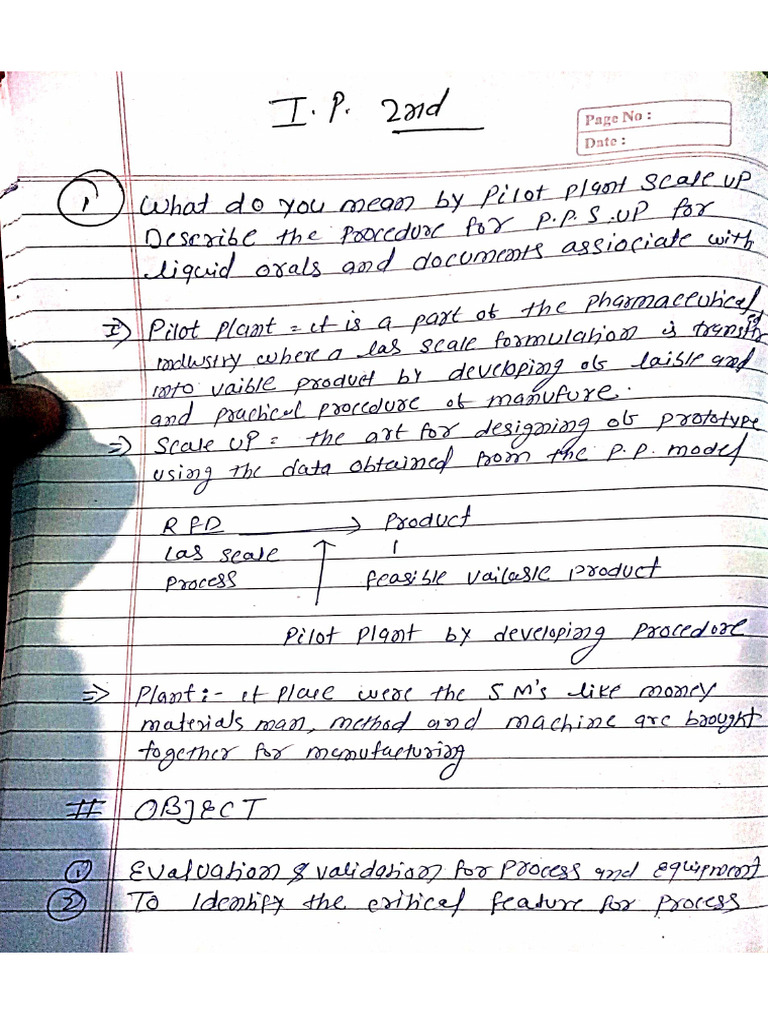 I.P. 2nd
Page No :
Date :
1 What do you mean by Pilot Plant Scale up
Describe the Procedure for P.P.S.UP for
liquid orals and documents assiociate with
I) Pilot Plant = it is a part of the Pharmaceutical
industry where a lab scale formulation is transfered
into vaible product by developing of laible and
and practical procedure of manufure.
=> Scale UP = the art for designing of prototype
using the data obtained from the P.P. model
R & D → Product
Lab scale
Process feasible vailable product
Pilot Plant by developing Procedore
=> Plant :- it place were the 5 M's like money
materials man, method and machine are brought
together for manufacturing
# OBJECT
1 Evaluation & validation for process and equipment
2 To Identify the critical feature for process